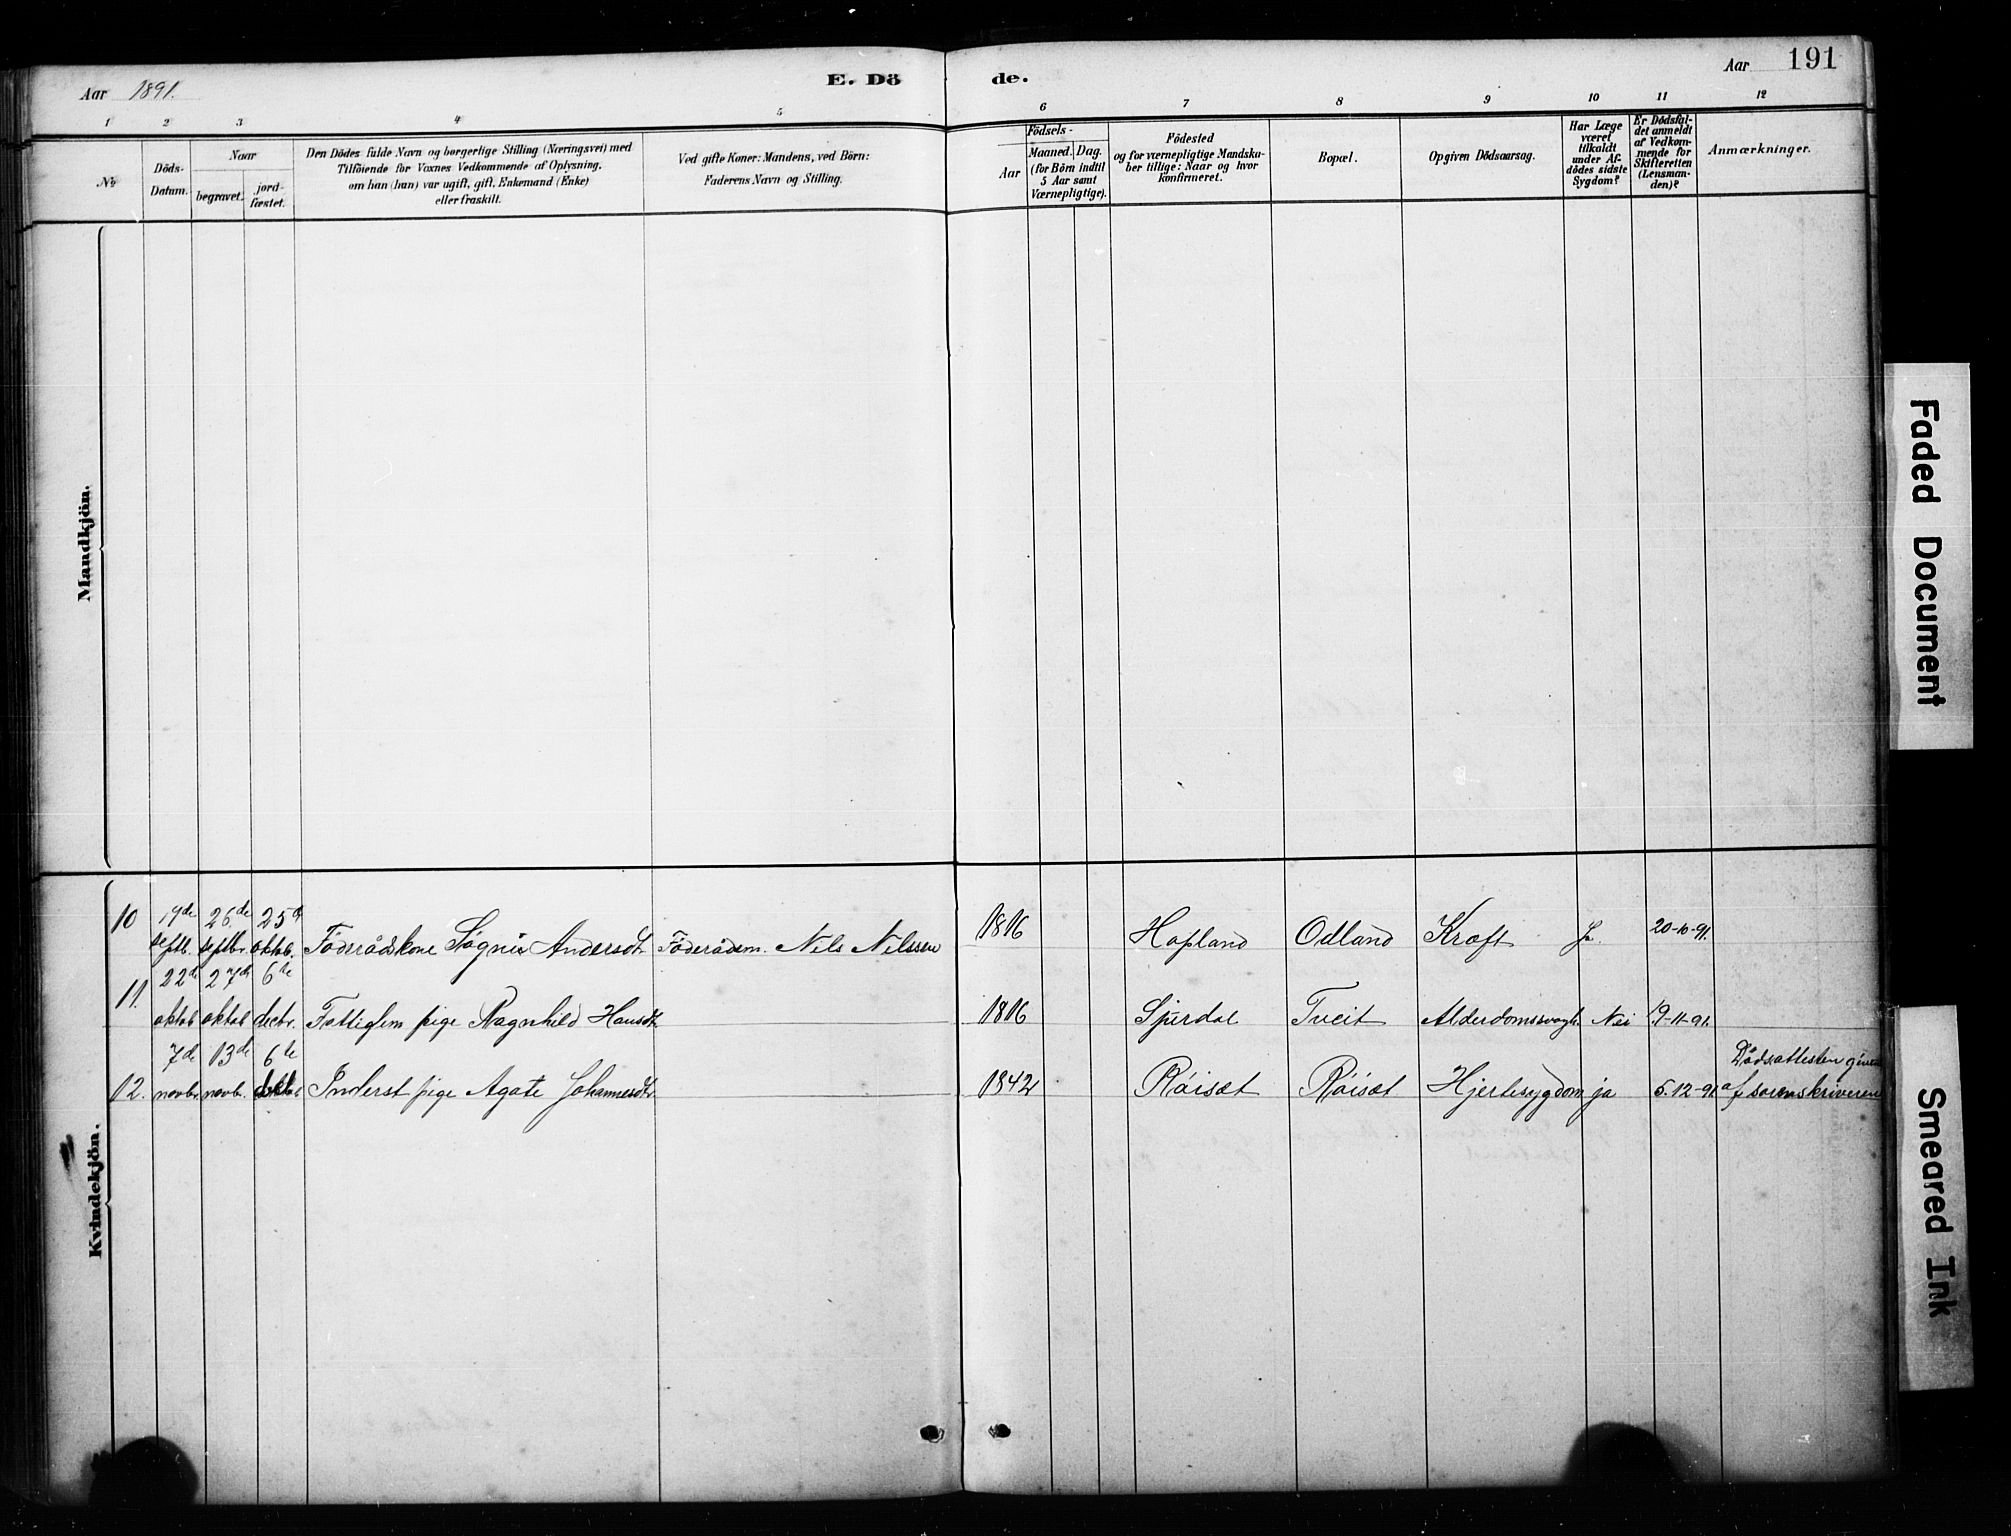 Aar 1891.
E. Dö
de.
Aar 191
1 2 3 4 5 6 7 8 9 10 11 12
No
Döds-
Datum.
Naar
begravet.
jord-
fæstet.
Den Dödes fulde Navn og borgerlige Stilling (Næringsvei) med
Tilföiende for Voxnes Vedkommende af Oplysning,
om han (hun) var ugift, gift, Enkemand (Enke)
eller fraskilt.
Ved gifte Koner: Mandens, ved Börn:
Faderens Navn og Stilling.
Födsels-
Aar
Maaned. Dag.
(for Börn indtil
5 Aar samt
Værnepligtige).
Födested
og for værnepligtige Mandska-
ber tillige: Naar og hvor
konfirmeret.
Bopæl.
Opgiven Dödsaarsag.
Har Læge
været
tilkaldt
under Af-
dödes sidste
Sygdom?
Er Dödsfal-
det anmeldt
af Vedkom-
mende for
Skifteretten
(Lensman-
den)?
Anmærkninger.
Mandkjön.
Kvindekjön.
10 19de septb. 26de septbr. 25de oktob. Föderådskone Søgni Andersdt. Föderådsm. Nils Nilssen 1816 Hopland Odland Kræft Ja. 20-10-91.
11. 22de oktob 27de oktob 6te decbr. Fattiglem pige Ragnhild Hansdt. 1816 Sperdal Tveit Alderdomssvagh. Nei 19-11-91.
12. 7de novbr. 13de novbr. 6te Inderst pige Agate Johannesdt. 1842 Röisæt Röisæt Hjertesygdom ja 5.12-91. Dödsattesten given
af sorenskriveren
Faded Document
Smeared Ink